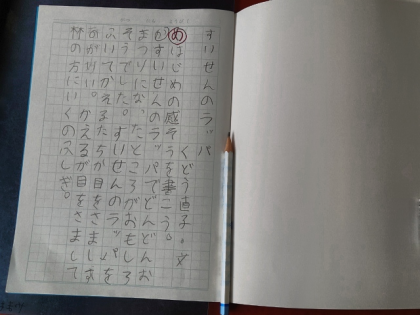 すいせんのラッパ
くどう直子・文
めはじめの感そうを書こう。
すいせんのラッパでどんどんお
まつりになったところがおもしろ
そうでした。すいせんのラッパ
かえるたちが目をさます
かえるが目をさまして
林の方にいくのふしぎ。